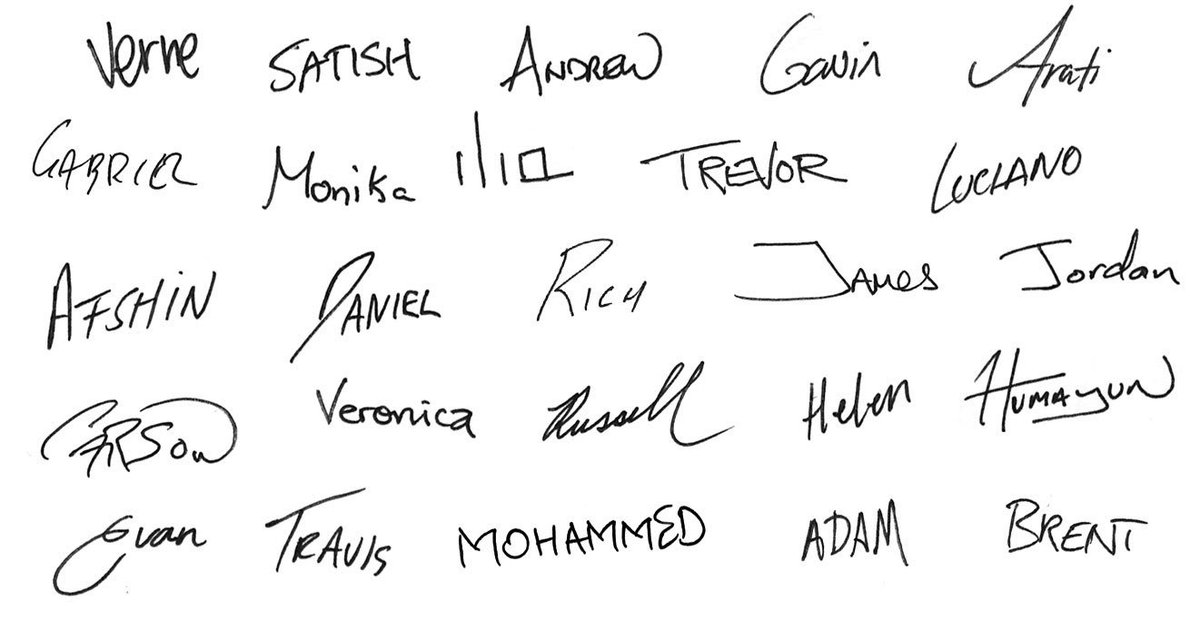 Verne SATISH ANDREW Gavin Arati
GABRIEL Monika TREVOR LUCIANO
AFSHIN DANIEL RICH JAMES Jordan
CARSON Veronica Russell Helen HUMAYUN
Evan TRAVIS MOHAMMED ADAM BRENT